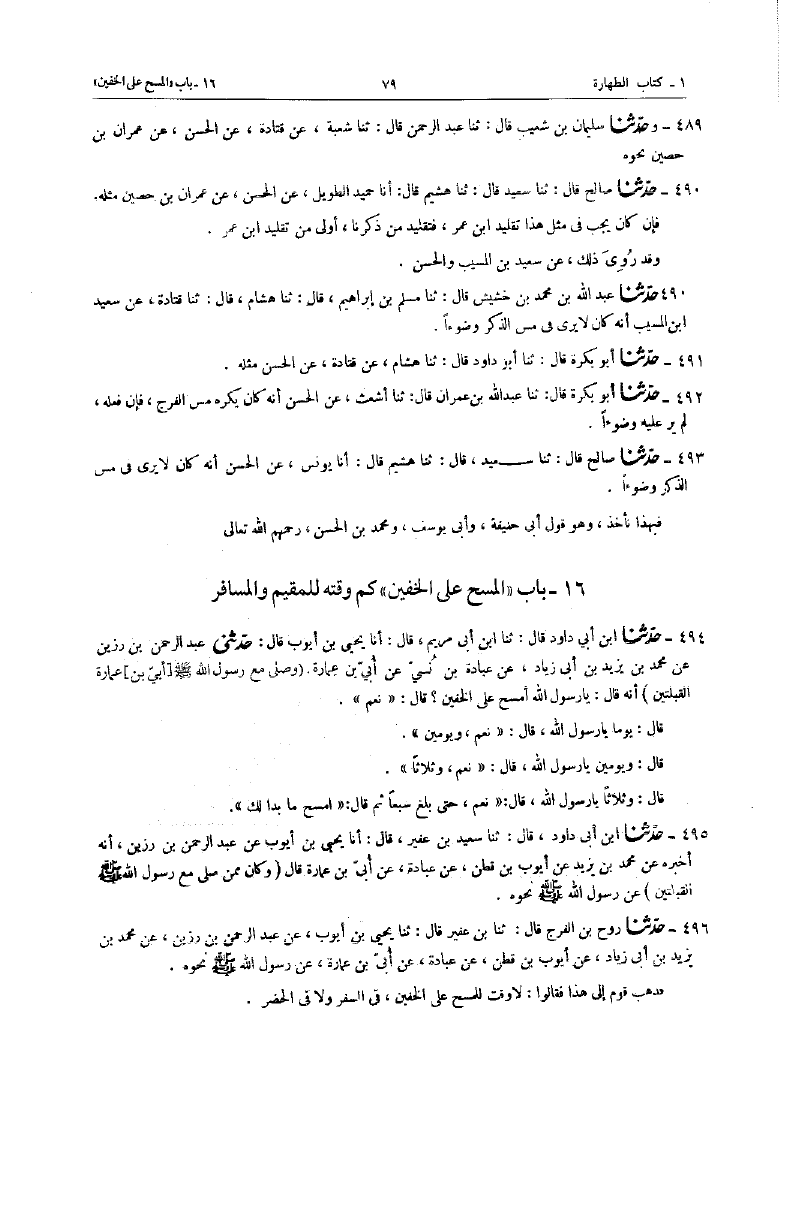 ١ - كتاب الطهارة ٧٩ ١٦ - باب «المسح على الخفين»
٤٨٩ - وحدّثنا سليمان بن شعيب قال : ثنا عبد الرحمن قال : ثنا شعبة ، عن قتادة ، عن الحسن ، عن عمران بن
حصين نحوه
٤٩٠ - حدّثنا صالح قال : ثنا سعيد قال : ثنا هشيم قال: أنا حميد الطويل ، عن الحسن ، عن عمران بن حصين مثله.
فإن كان يجب فى مثل هذا تقليد ابن عمر ، فتقليد من ذكرنا ، أولى من تقليد ابن عمر .
وقد رُوِىَ ذلك ، عن سعيد بن المسيب والحسن .
٤٩٠ حدّثنا عبد الله بن محمد بن خشيش قال : ثنا مسلم بن إبراهيم ، قال : ثنا هشام ، قال : ثنا قتادة ، عن سعيد
ابن المسيب أنه كان لايرى فى مس الذكر وضوءاً .
٤٩١ - حدّثنا أبو بكرة قال : ثنا أبو داود قال : ثنا هشام ، عن قتادة ، عن الحسن مثله .
٤٩٢ - حدّثنا أبو بكرة قال: ثنا عبدالله بن عمران قال: ثنا أشعث ، عن الحسن أنه كان يكره مس الفرج ، فإن فعله ،
لم ير عليه وضوءاً .
٤٩٣ - حدّثنا صالح قال : ثنا سـعيد ، قال : ثنا هشيم قال : أنا يونس ، عن الحسن أنه كان لايرى فى مس
الذكر وضوءاً .
فبهذا نأخذ ، وهو قول أبى حنيفة ، وأبى يوسف ، ومحمد بن الحسن ، رحمهم الله تعالى
١٦ - باب «المسح على الخفين» كم وقته للمقيم والمسافر
٤٩٤ - حدّثنا ابن أبي داود قال : ثنا ابن أبى مريم ، قال : أنا يحيى بن أيوب قال : حدّثنى عبد الرحمن بن رزين
عن محمد بن يزيد بن أبى زياد ، عن عبادة بن نُسىّ عن أُبىّ بن عمارة. (وصلى مع رسول الله ﷺ [أبىّ بن] عمارة
القبلتين ) أنه قال : يارسول الله أمسح على الخفين ؟ قال : « نعم » .
قال : يوما يارسول الله ، قال : « نعم ، ويومين » .
قال : ويومين يارسول الله ، قال : « نعم ، وثلاثاً » .
قال : وثلاثاً يارسول الله ، قال:« نعم ، حتى بلغ سبعاً ثم قال:« امسح ما بدا لك ».
٤٩٥ - حدّثنا ابن أبى داود ، قال : ثنا سعيد بن عفير ، قال : أنا يحيى بن أيوب عن عبد الرحمن بن رزين ، أنه
أخبره عن محمد بن يزيد عن أيوب بن قطن ، عن عبادة ، عن أبىّ بن عمارة قال ( وكان ممن صلى مع رسول الله ﷺ
القبلتين ) عن رسول الله ﷺ نحوه .
٤٩٦ - حدّثنا روح بن الفرج قال : ثنا بن عفير قال : ثنا يحيى بن أيوب ، عن عبد الرحمن بن رزين ، عن محمد بن
يزيد بن أبى زياد ، عن أيوب بن قطن ، عن عبادة ، عن أبىّ بن عمارة ، عن رسول الله ﷺ نحوه .
فذهب قوم إلى هذا فقالوا : لاوقت للمسح على الخفين ، فى السفر ولا فى الحضر .